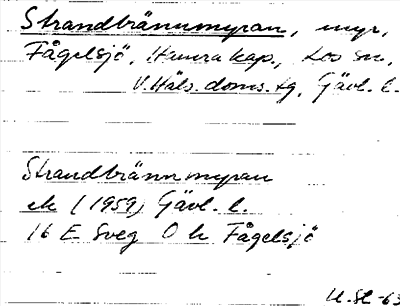 Strandbrännmyran, myr,
Fågelsjö, Hamra kap., Los sn,
V. Häls. doms. tg, Gävl. l.
Strandbrännmyran
ek (1959) Gävl. l.
16 E Sveg O h Fågelsjö
-63